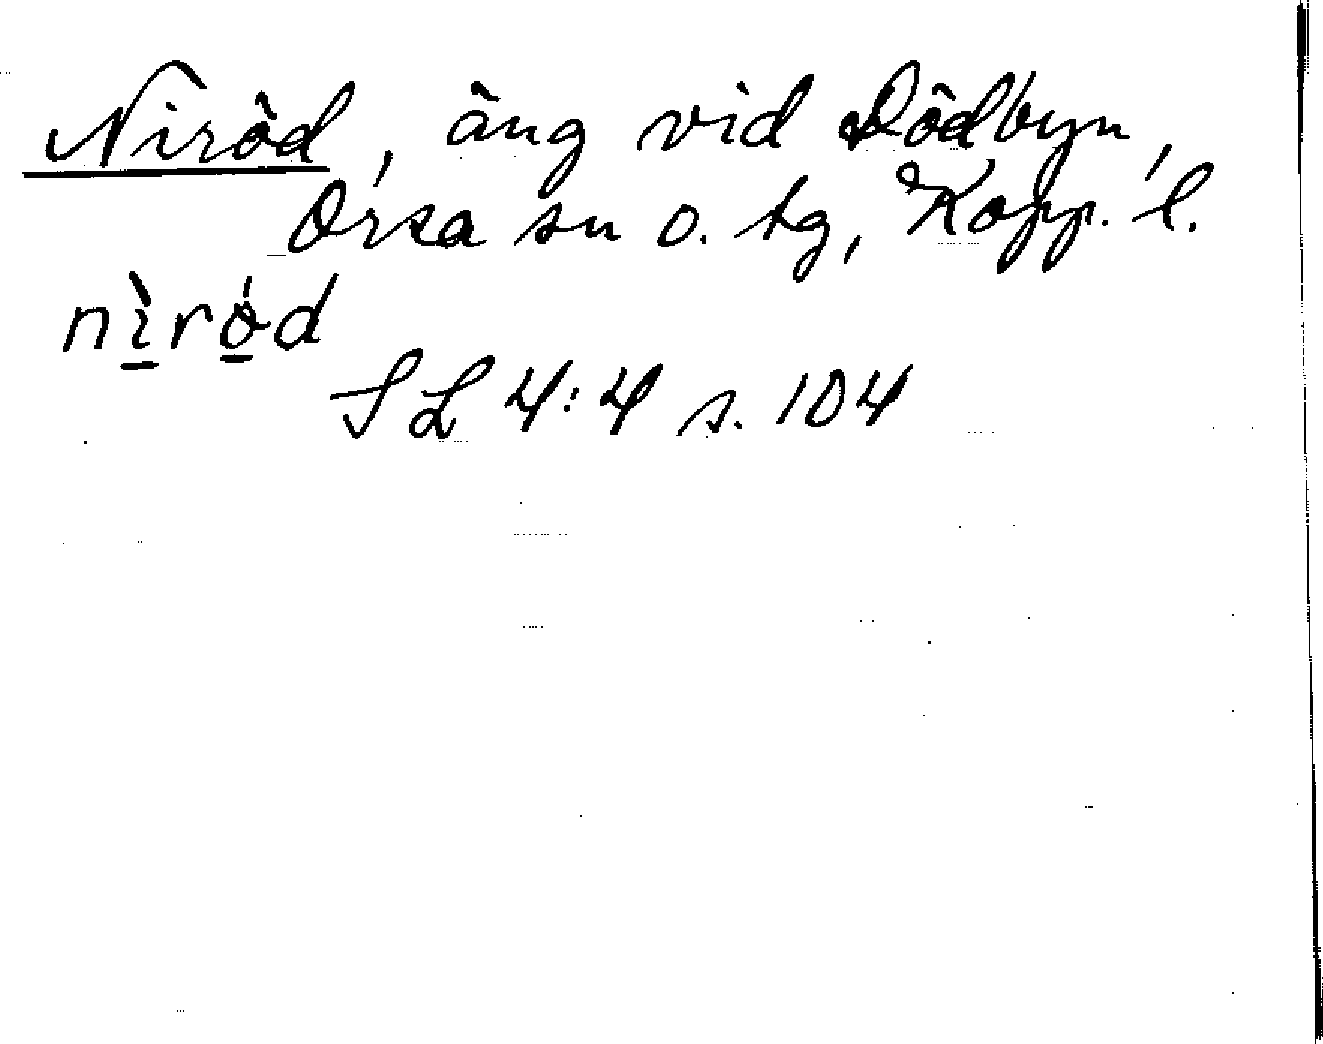 Niröd, äng vid Dödbyn,
Orsa sn o. tg, Kopp. l.
nìrǿd
SL 4:4 s. 104